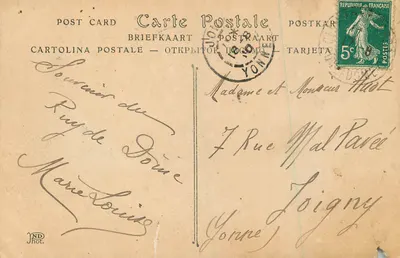 POST CARD Carte Postale
BRIEFKAART POSTKAART
CARTOLINA POSTALE TARJETA
REPUBLIQUE FRANÇAISE
5c
YONNE
Souvenir du
Puy de Dôme
Marie Louise
Madame et Monsieur
7 Rue Mal Pavée
Joigny
Yonne
ND